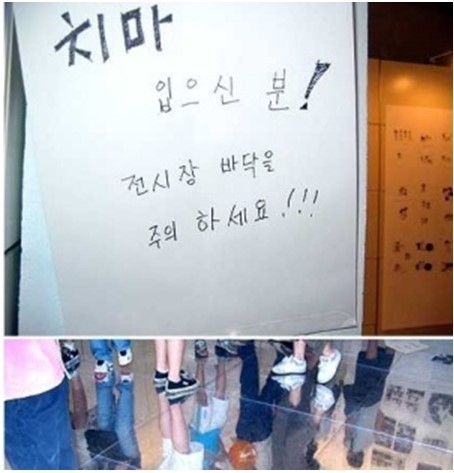 치마
입으신 분!
전시장 바닥을
주의 하세요!!!